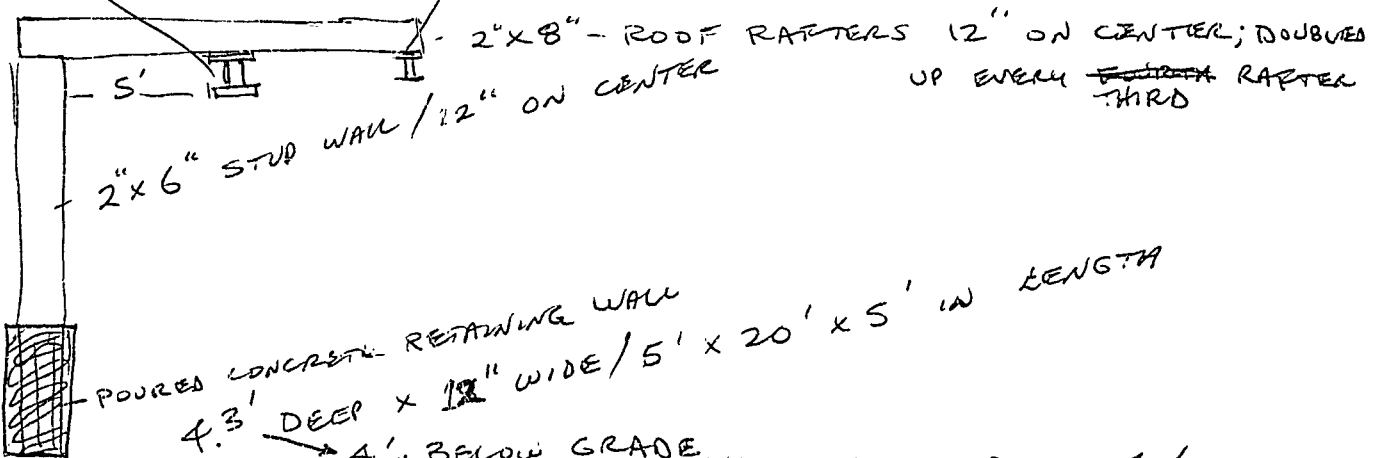 2"x8" - ROOF RAFTERS 12" ON CENTER; DOUBLED
UP EVERY THIRD RAFTER
5'
2"x6" STUD WALL / 12" ON CENTER
POURED CONCRETE RETAINING WALL
4.3' DEEP x 12" WIDE / 5' x 20' x 5' IN LENGTH
4' BELOW GRADE